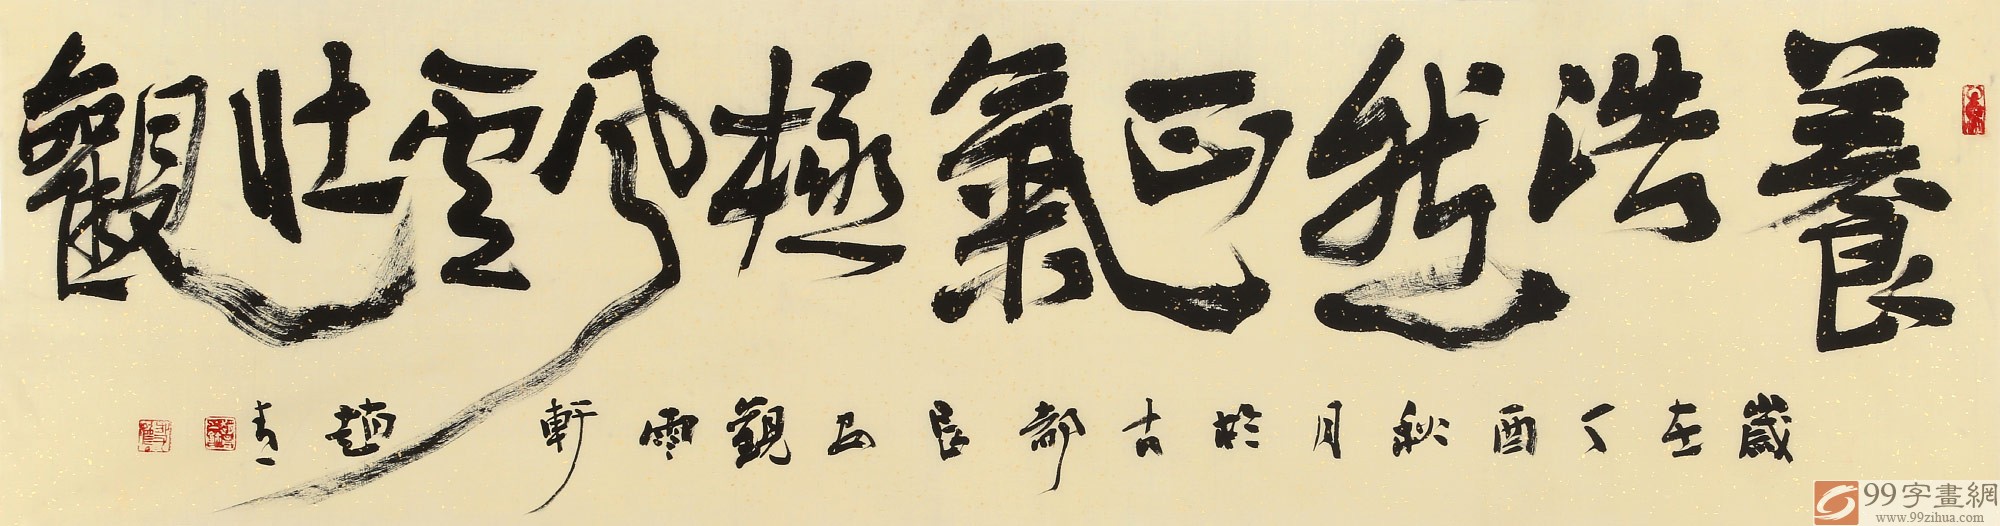 養浩然正氣極風雲壯觀
歲在丁酉秋月於古都長安觀雲軒趙
99字畫網
www.99zihua.com